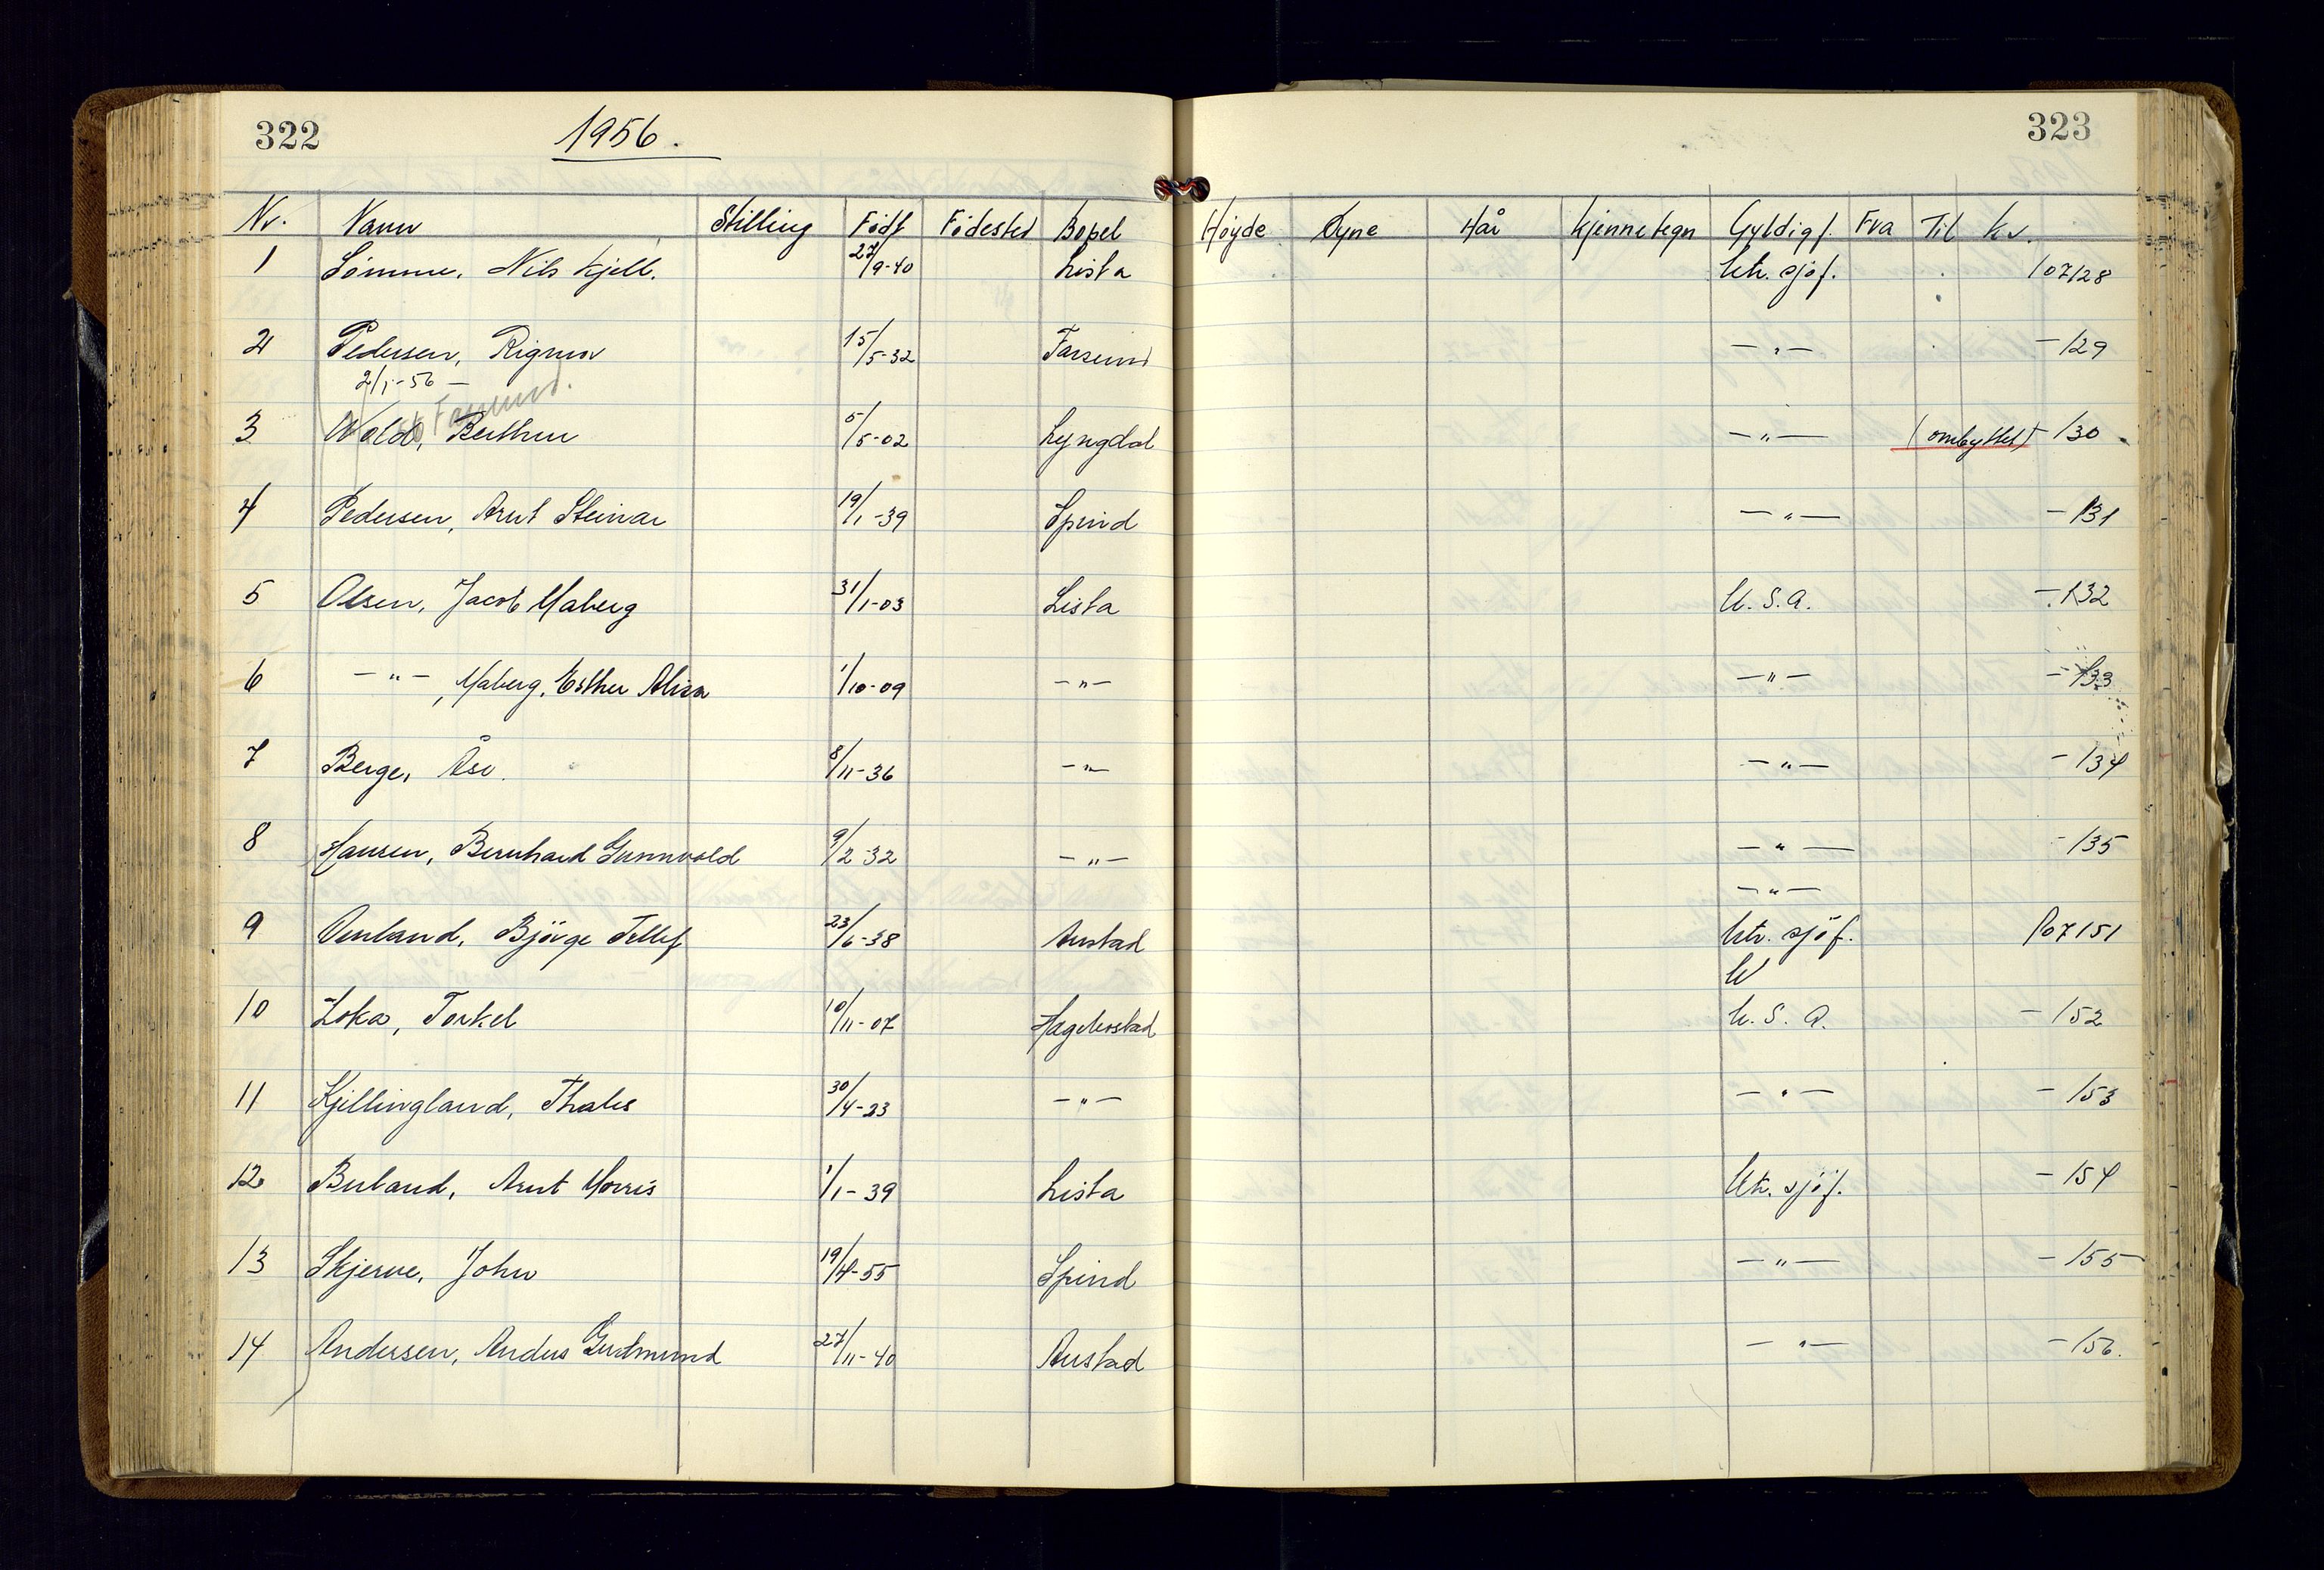 322 1956. 323
Nr. Navn Stilling Født Fødested Bopel Høyde Øyne Hår Kjennetegn Gyldig f. Fra Til Kv.
1 Sømme, Nils Kjell. 27/9-40 Lista Utr. sjøf. 107128
2 Pedersen, Rigmor 15/5-32 Farsund -"- -129
2/1-56 - Farsund.
3 Wold, Berthu 5/5-02 Lyngdal -"- (ombyttet) -130
4 Pedersen, Arnt Steinar 19/1-39 Spind -"- -131
5 Olsen, Jacob Maberg 31/1-03 Lista U.S.A. -132
6 -"-, Maberg, Esther Alisa 1/10-09 -"- -"- -133
7 Berge, Åse. 8/11-36 -"- -"- -134
8 Hansen, Bernhard Gunnvald 9/2-32 -"- -"- -135
-"-
9 Omland, Bjørge Tellef 23/6-38 Austad Utr. sjöf. 107151
U
10 Loka, Torkel 10/11-07 Hægebostad U.S.A. -152
11 Kjellingland, Thales 30/4-23 -"- -"- -153
12 Buland, Arnt Morris 1/1-39 Lista Utr. sjöf. -154
13 Skjerve, John 19/4-55 Spind -"- -155
14 Andersen, Anders Gudmund 27/11-40 Austad -"- -156.